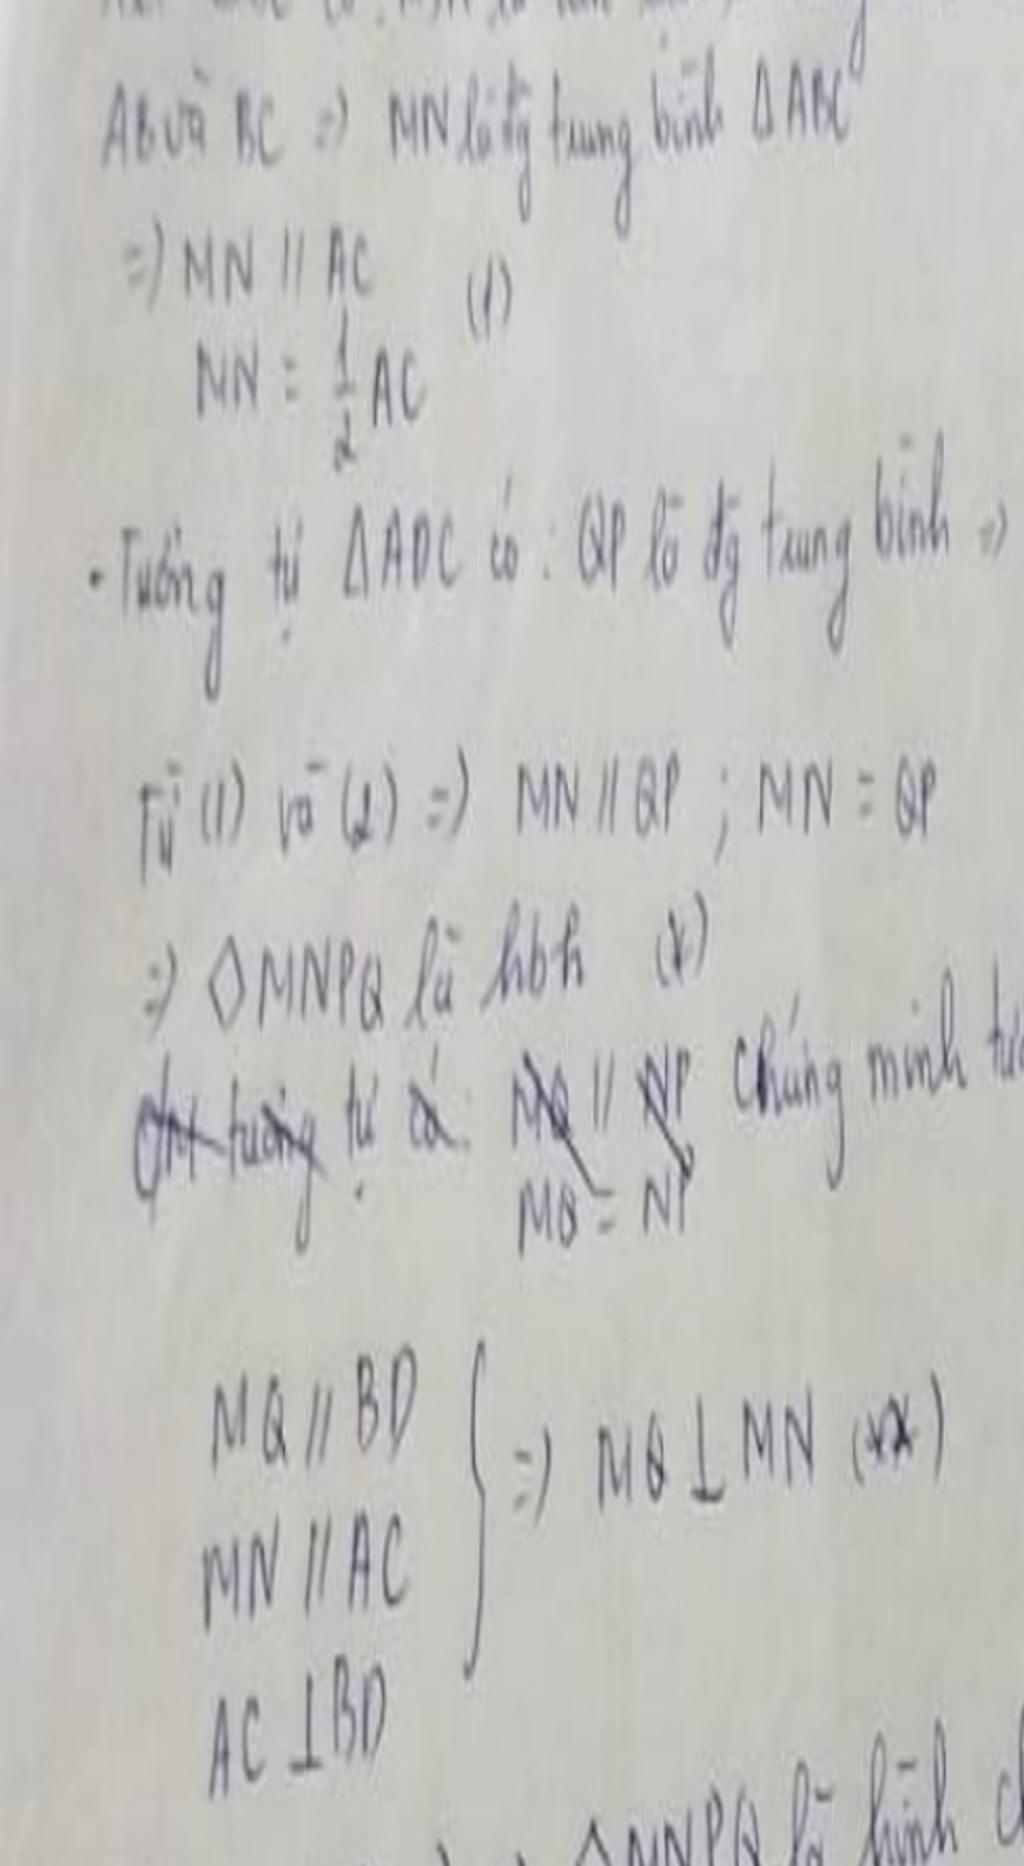 AB và BC => MN là đg trung bình Δ ABC
=> MN // AC (1)
MN = 1/2 AC
• Tương tự Δ ADC có : QP là đg trung bình =>
Từ (1) và (2) => MN // QP ; MN = QP
=> ◇ MNPQ là hbh (*)
tương tự có: MQ // NP Chứng minh
MQ = NP
MQ // BD
MN // AC } => MQ ⊥ MN (**)
AC ⊥ BD
MNPQ là hình